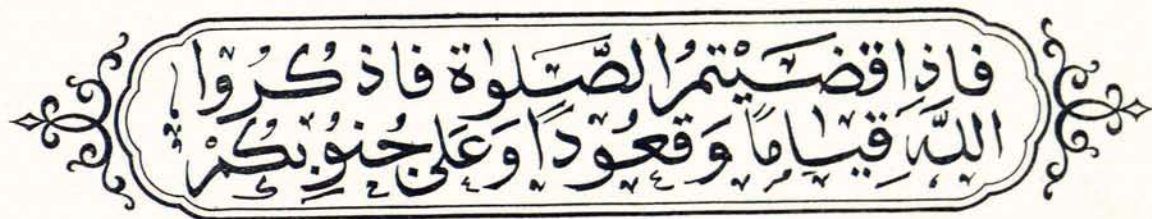 فاذا قضيتم الصلوة فاذكروا
الله قياما وقعودا وعلى جنوبكم